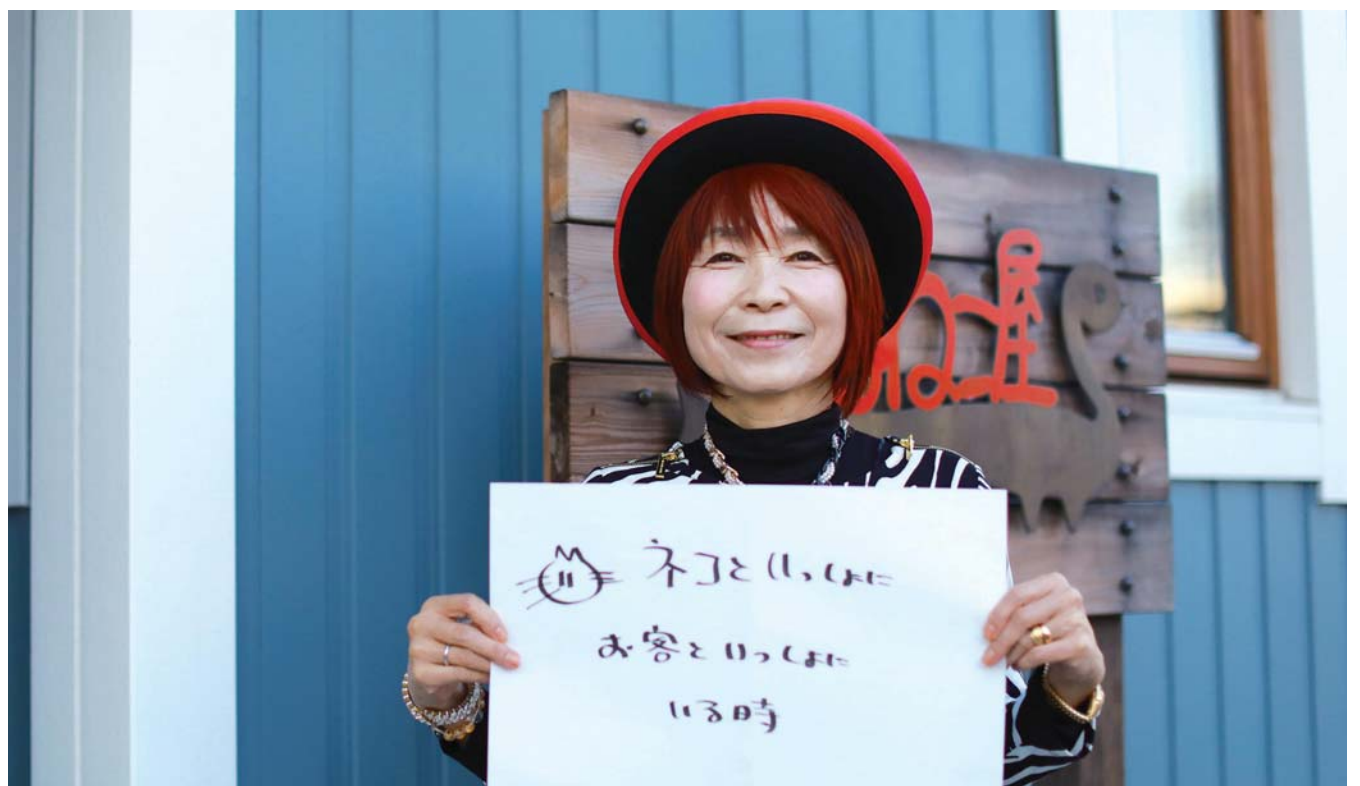 ネコといっしょに
お客といっしょに
いる時